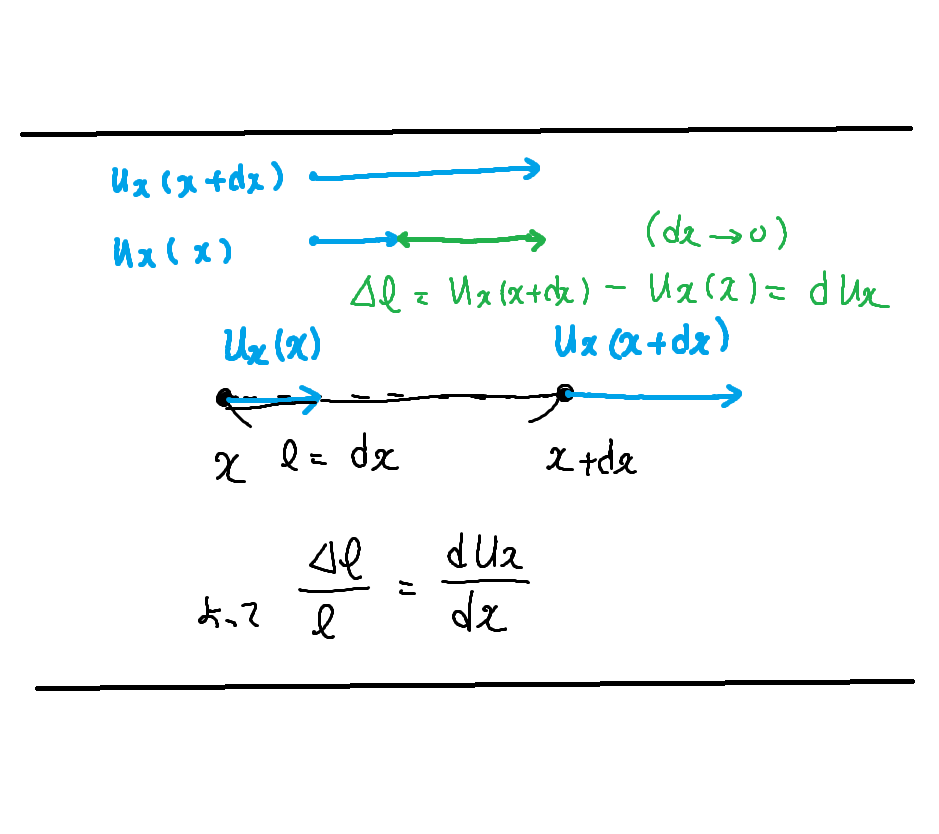 Ux(x+dx)
Ux(x) (dx→0)
Δl = Ux(x+dx) − Ux(x) = dUx
Ux(x) Ux(x+dx)
x l = dx x+dx
よって Δl/l = dUx/dx